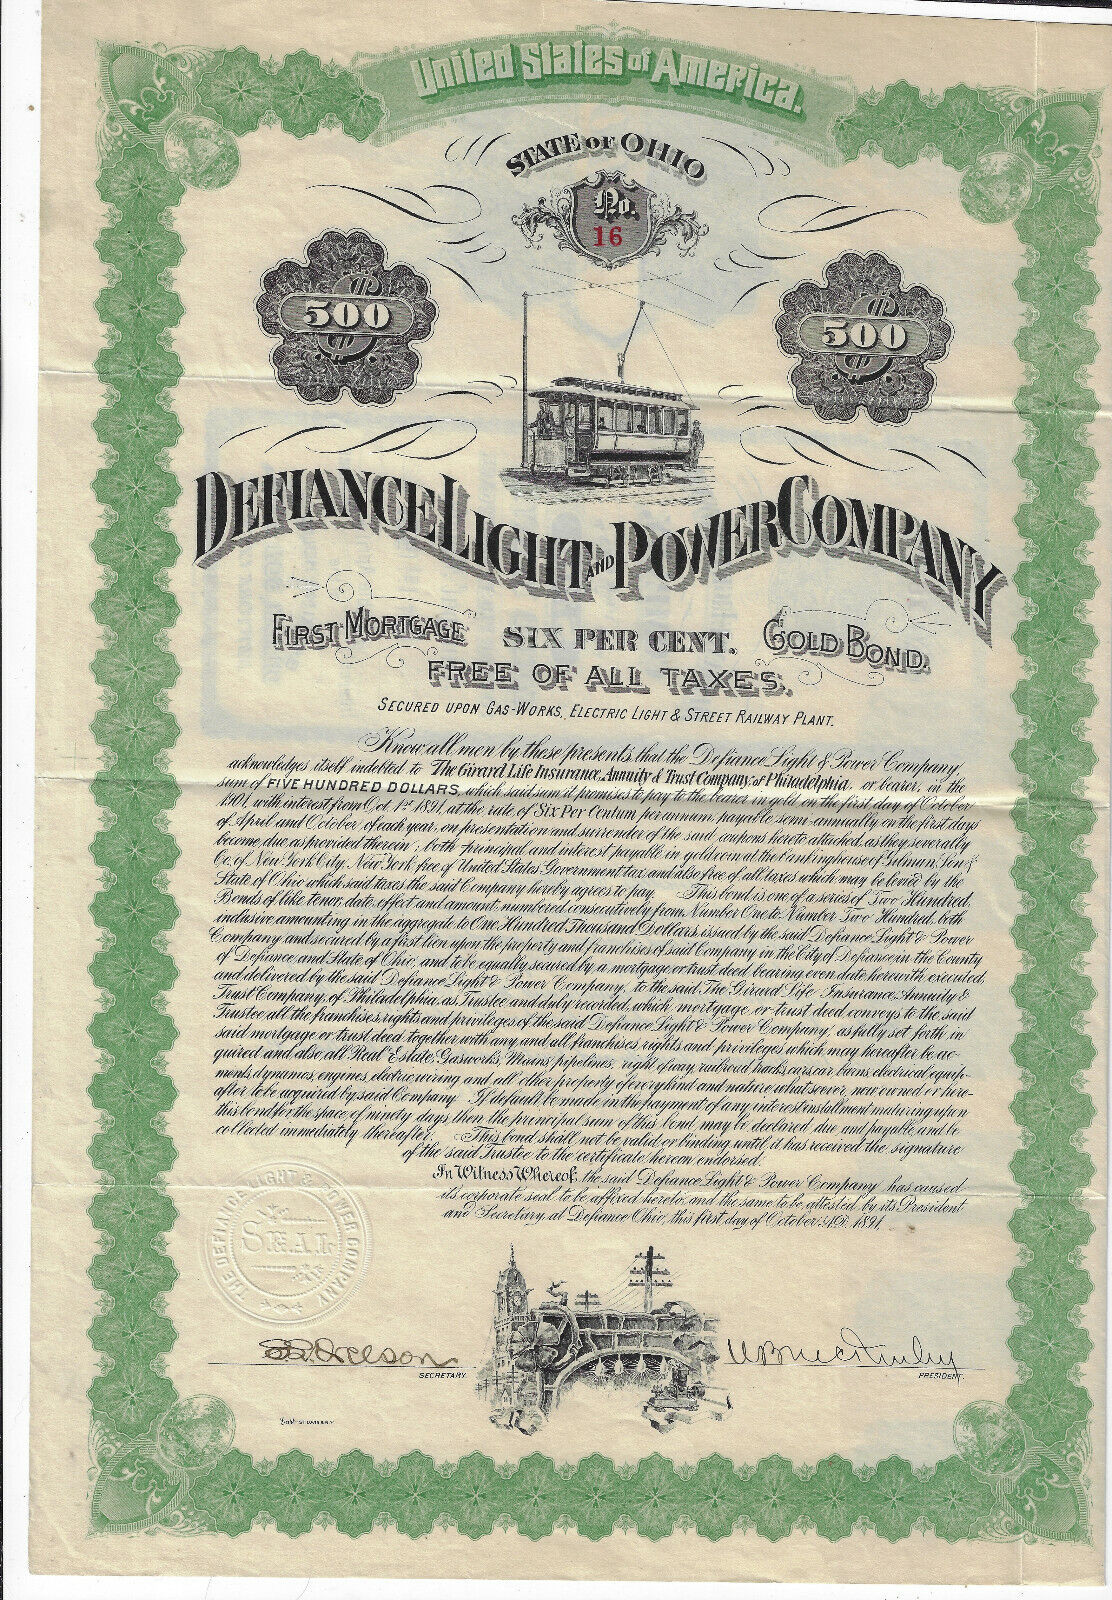 United States of America.
STATE OF OHIO
No.
16
$ 500
$ 500
DEFIANCE LIGHT AND POWER COMPANY
FIRST MORTGAGE SIX PER CENT. GOLD BOND.
FREE OF ALL TAXES.
SECURED UPON GAS-WORKS, ELECTRIC LIGHT & STREET RAILWAY PLANT.
Know all men by these presents, that the Defiance Light & Power Company
acknowledges itself indebted to The Girard Life Insurance, Annuity & Trust Company, of Philadelphia, or bearer, in the
sum of FIVE HUNDRED DOLLARS, which said sum it promises to pay to the bearer in gold on the first day of October
1901, with interest from Oct. 1st 1891, at the rate of Six Per Centum per annum, payable semi-annually on the first days
of April and October, of each year, on presentation and surrender of the said coupons hereto attached, as they severally
become due as provided therein; both principal and interest payable in gold coin at the banking house of Gilman, Son &
Co. of New York City, New York free of United States Government tax and also free of all taxes which may be levied by the
State of Ohio which said taxes the said Company hereby agrees to pay. This bond is one of a series of Two Hundred
Bonds of like tenor, date, effect and amount, numbered consecutively from Number One to Number Two Hundred, both
inclusive amounting in the aggregate to One Hundred Thousand Dollars, issued by the said Defiance Light & Power
Company and secured by a first lien upon the property and franchises of said Company in the City of Defiance in the County
of Defiance and State of Ohio, and to be equally secured by a mortgage or trust deed bearing even date herewith executed
and delivered by the said Defiance Light & Power Company, to the said The Girard Life Insurance Annuity &
Trust Company, of Philadelphia, as Trustee and duly recorded, which mortgage or trust deed conveys to the said
Trustee all the franchises, rights and privileges of the said Defiance Light & Power Company, as fully set forth in
said mortgage or trust deed together with any and all franchises, rights and privileges which may hereafter be ac-
quired and also, all Real Estate, Gasworks, Mains, pipelines, right of way, railroad tracks, cars, car barns, electrical equip-
ments, dynamos, engines, electric wiring and all other property of every kind and nature whatsoever, now owned or here-
after to be acquired by said Company. If default be made in the payment of any interest installment maturing upon
this bond for the space of ninety days, then the principal sum of this bond may be declared due and payable, and be
collected immediately thereafter. This bond shall not be valid or binding until it has received the signature
of the said Trustee to the certificate hereon endorsed.
In Witness Whereof, the said Defiance Light & Power Company has caused
its corporate seal to be affixed hereto, and the same to be attested by its President
and Secretary, at Defiance Ohio, this first day of October A.D. 1891.
THE DEFIANCE LIGHT & POWER COMPANY
SEAL
SECRETARY.
PRESIDENT.